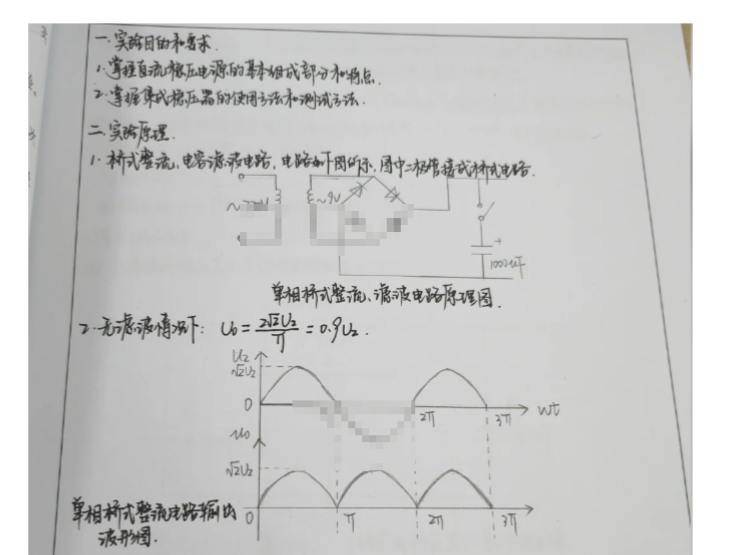 一.实验目的和要求.
1.掌握直流稳压电源的基本组成部分和特点.
2.掌握集成稳压器的使用方法和测试方法.
二.实验原理.
1.桥式整流、电容滤波电路,电路如下图所示,图中二极管接成桥式电路.
~9V
+
单相桥式整流、滤波电路原理图.
2.无滤波情况下: U₀=2√2U₂/π=0.9U₂.
U₂
√2U₂
0 2π 3π wt
u₀
√2U₂
0 π 2π 3π
单相桥式整流电路输出
波形图.